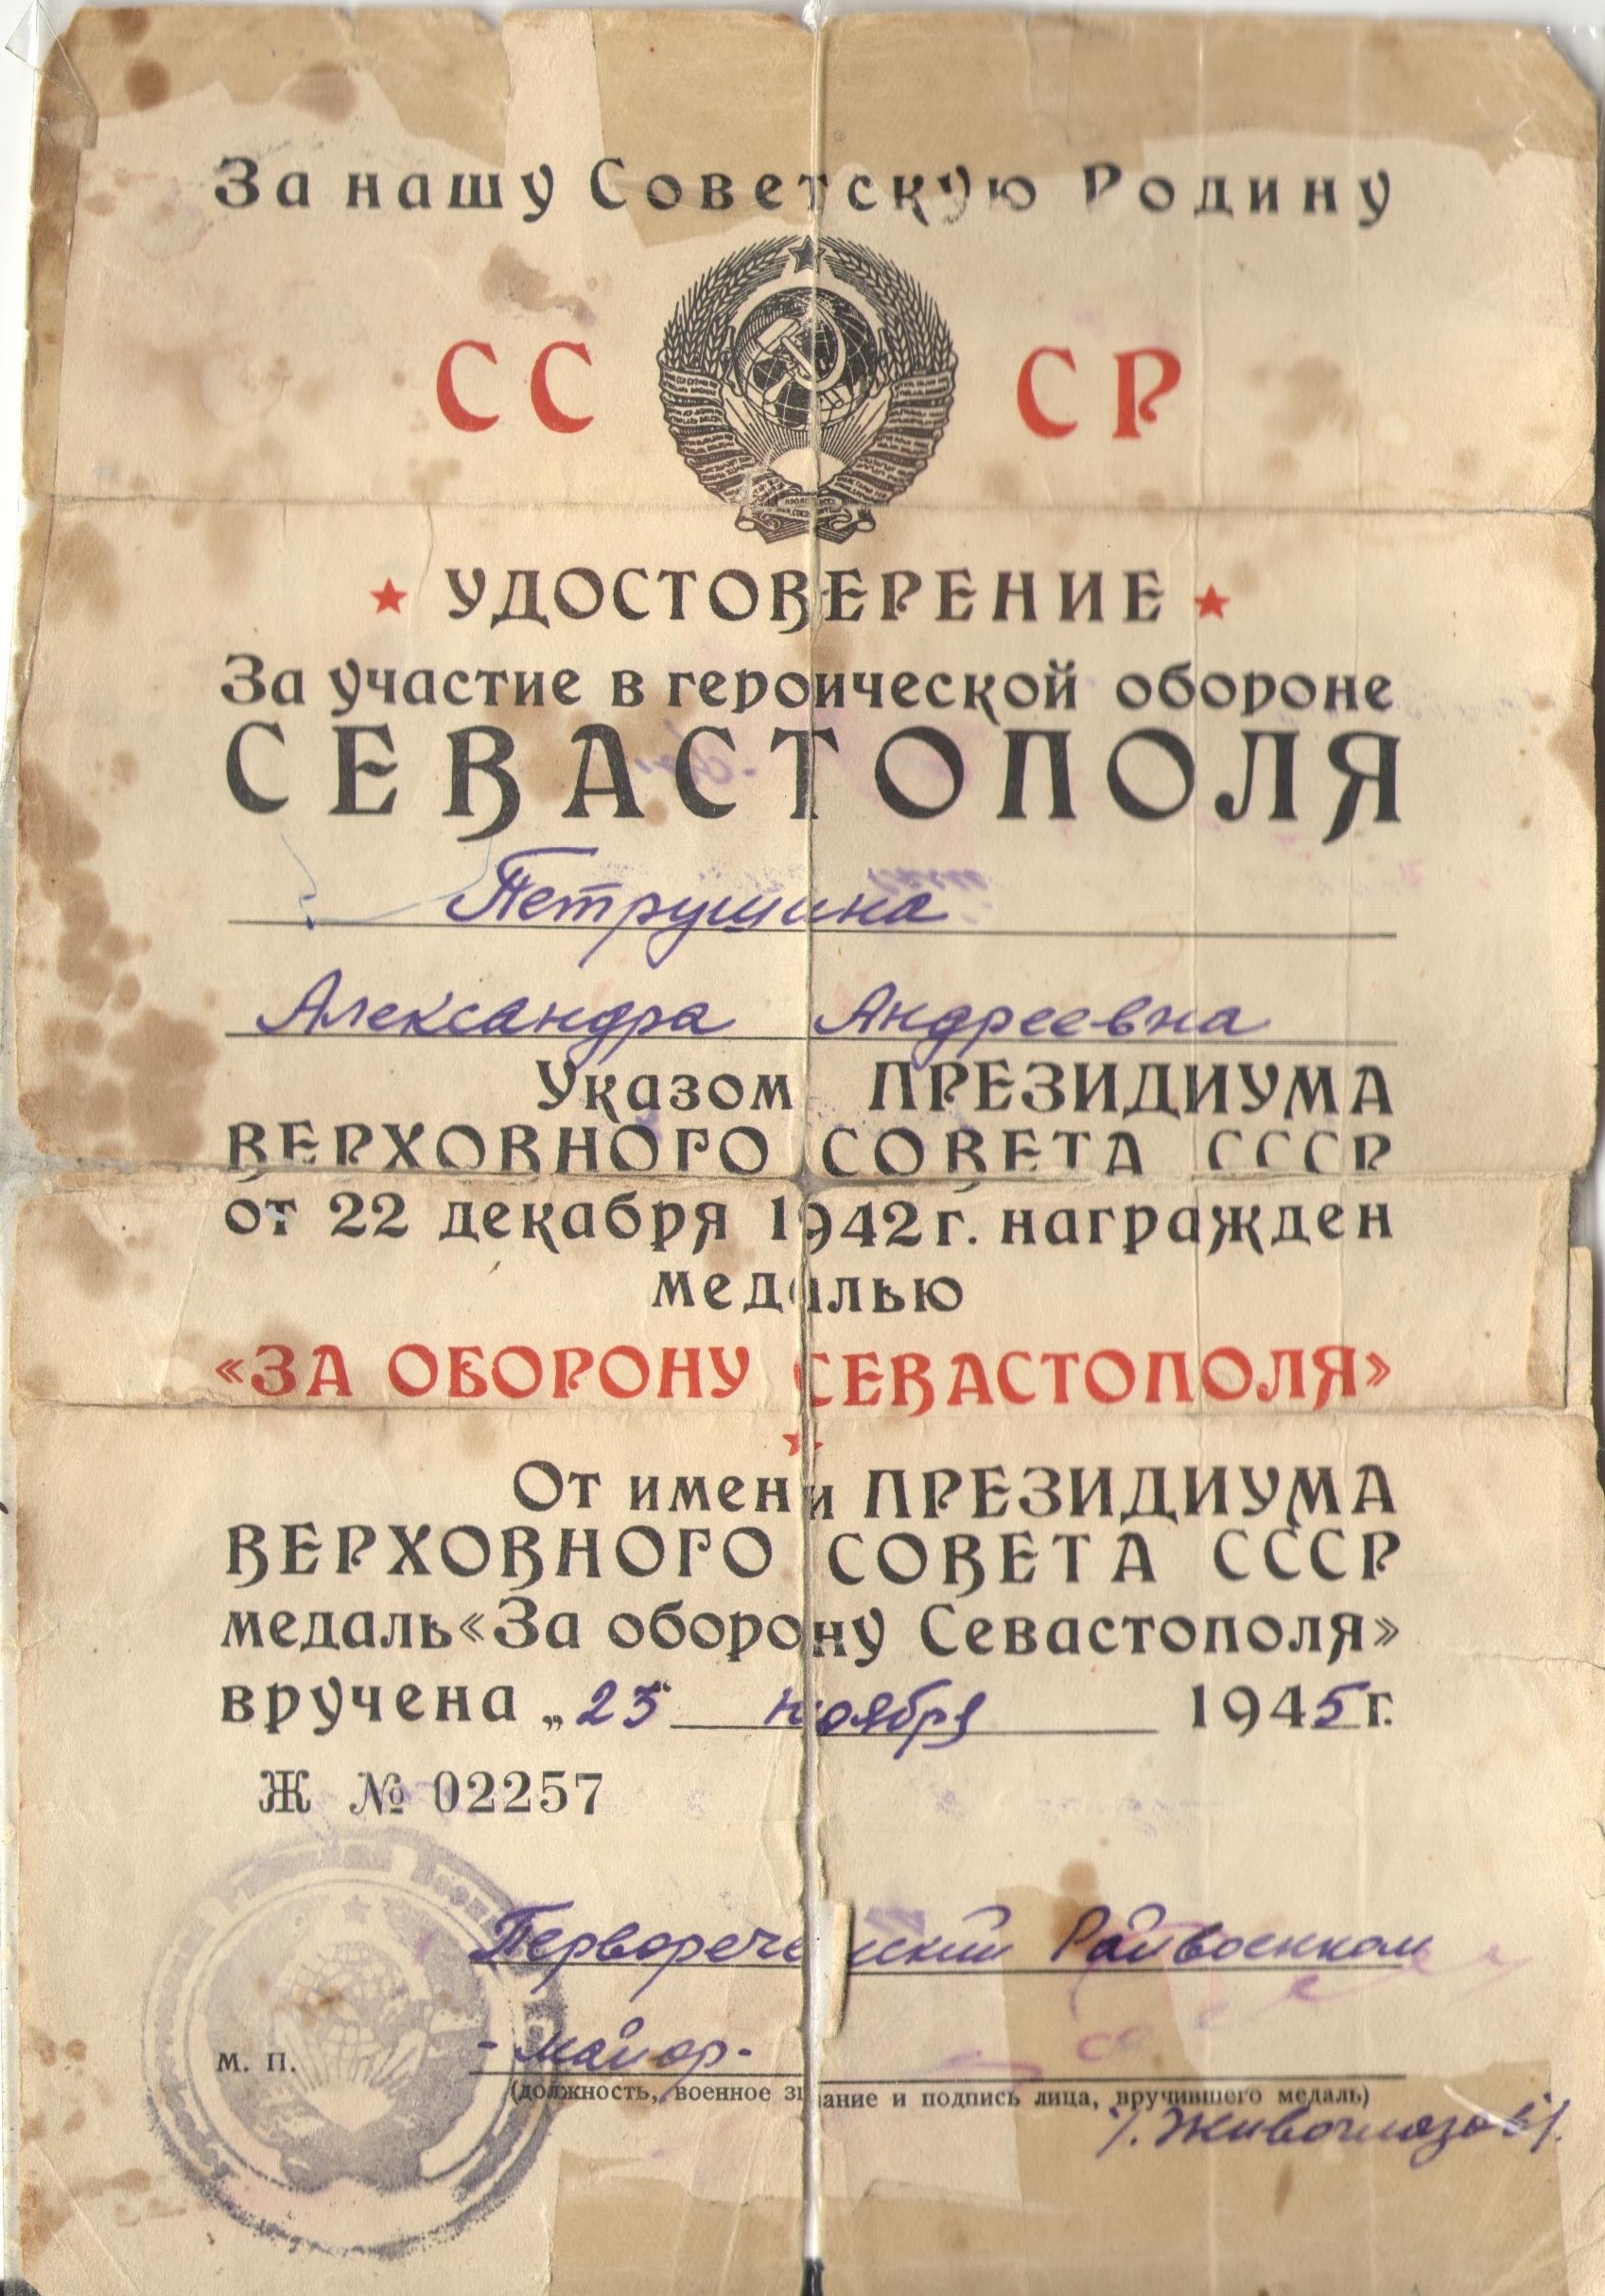 За нашу Советскую Родину
СС СР
УДОСТОВЕРЕНИЕ
За участие в героической обороне
СЕВАСТОПОЛЯ
Петрушина
Александра Андреевна
Указом ПРЕЗИДИУМА
ВЕРХОВНОГО СОВЕТА СССР
от 22 декабря 1942 г. награжден
медалью
«ЗА ОБОРОНУ СЕВАСТОПОЛЯ»
От имени ПРЕЗИДИУМА
ВЕРХОВНОГО СОВЕТА СССР
медаль «За оборону Севастополя»
вручена „23“ ноября 1945 г.
Ж № 02257
Первореченский Райвоенком
м. п. - майор -
(должность, военное звание и подпись лица, вручившего медаль)
/. Живоглазов /.